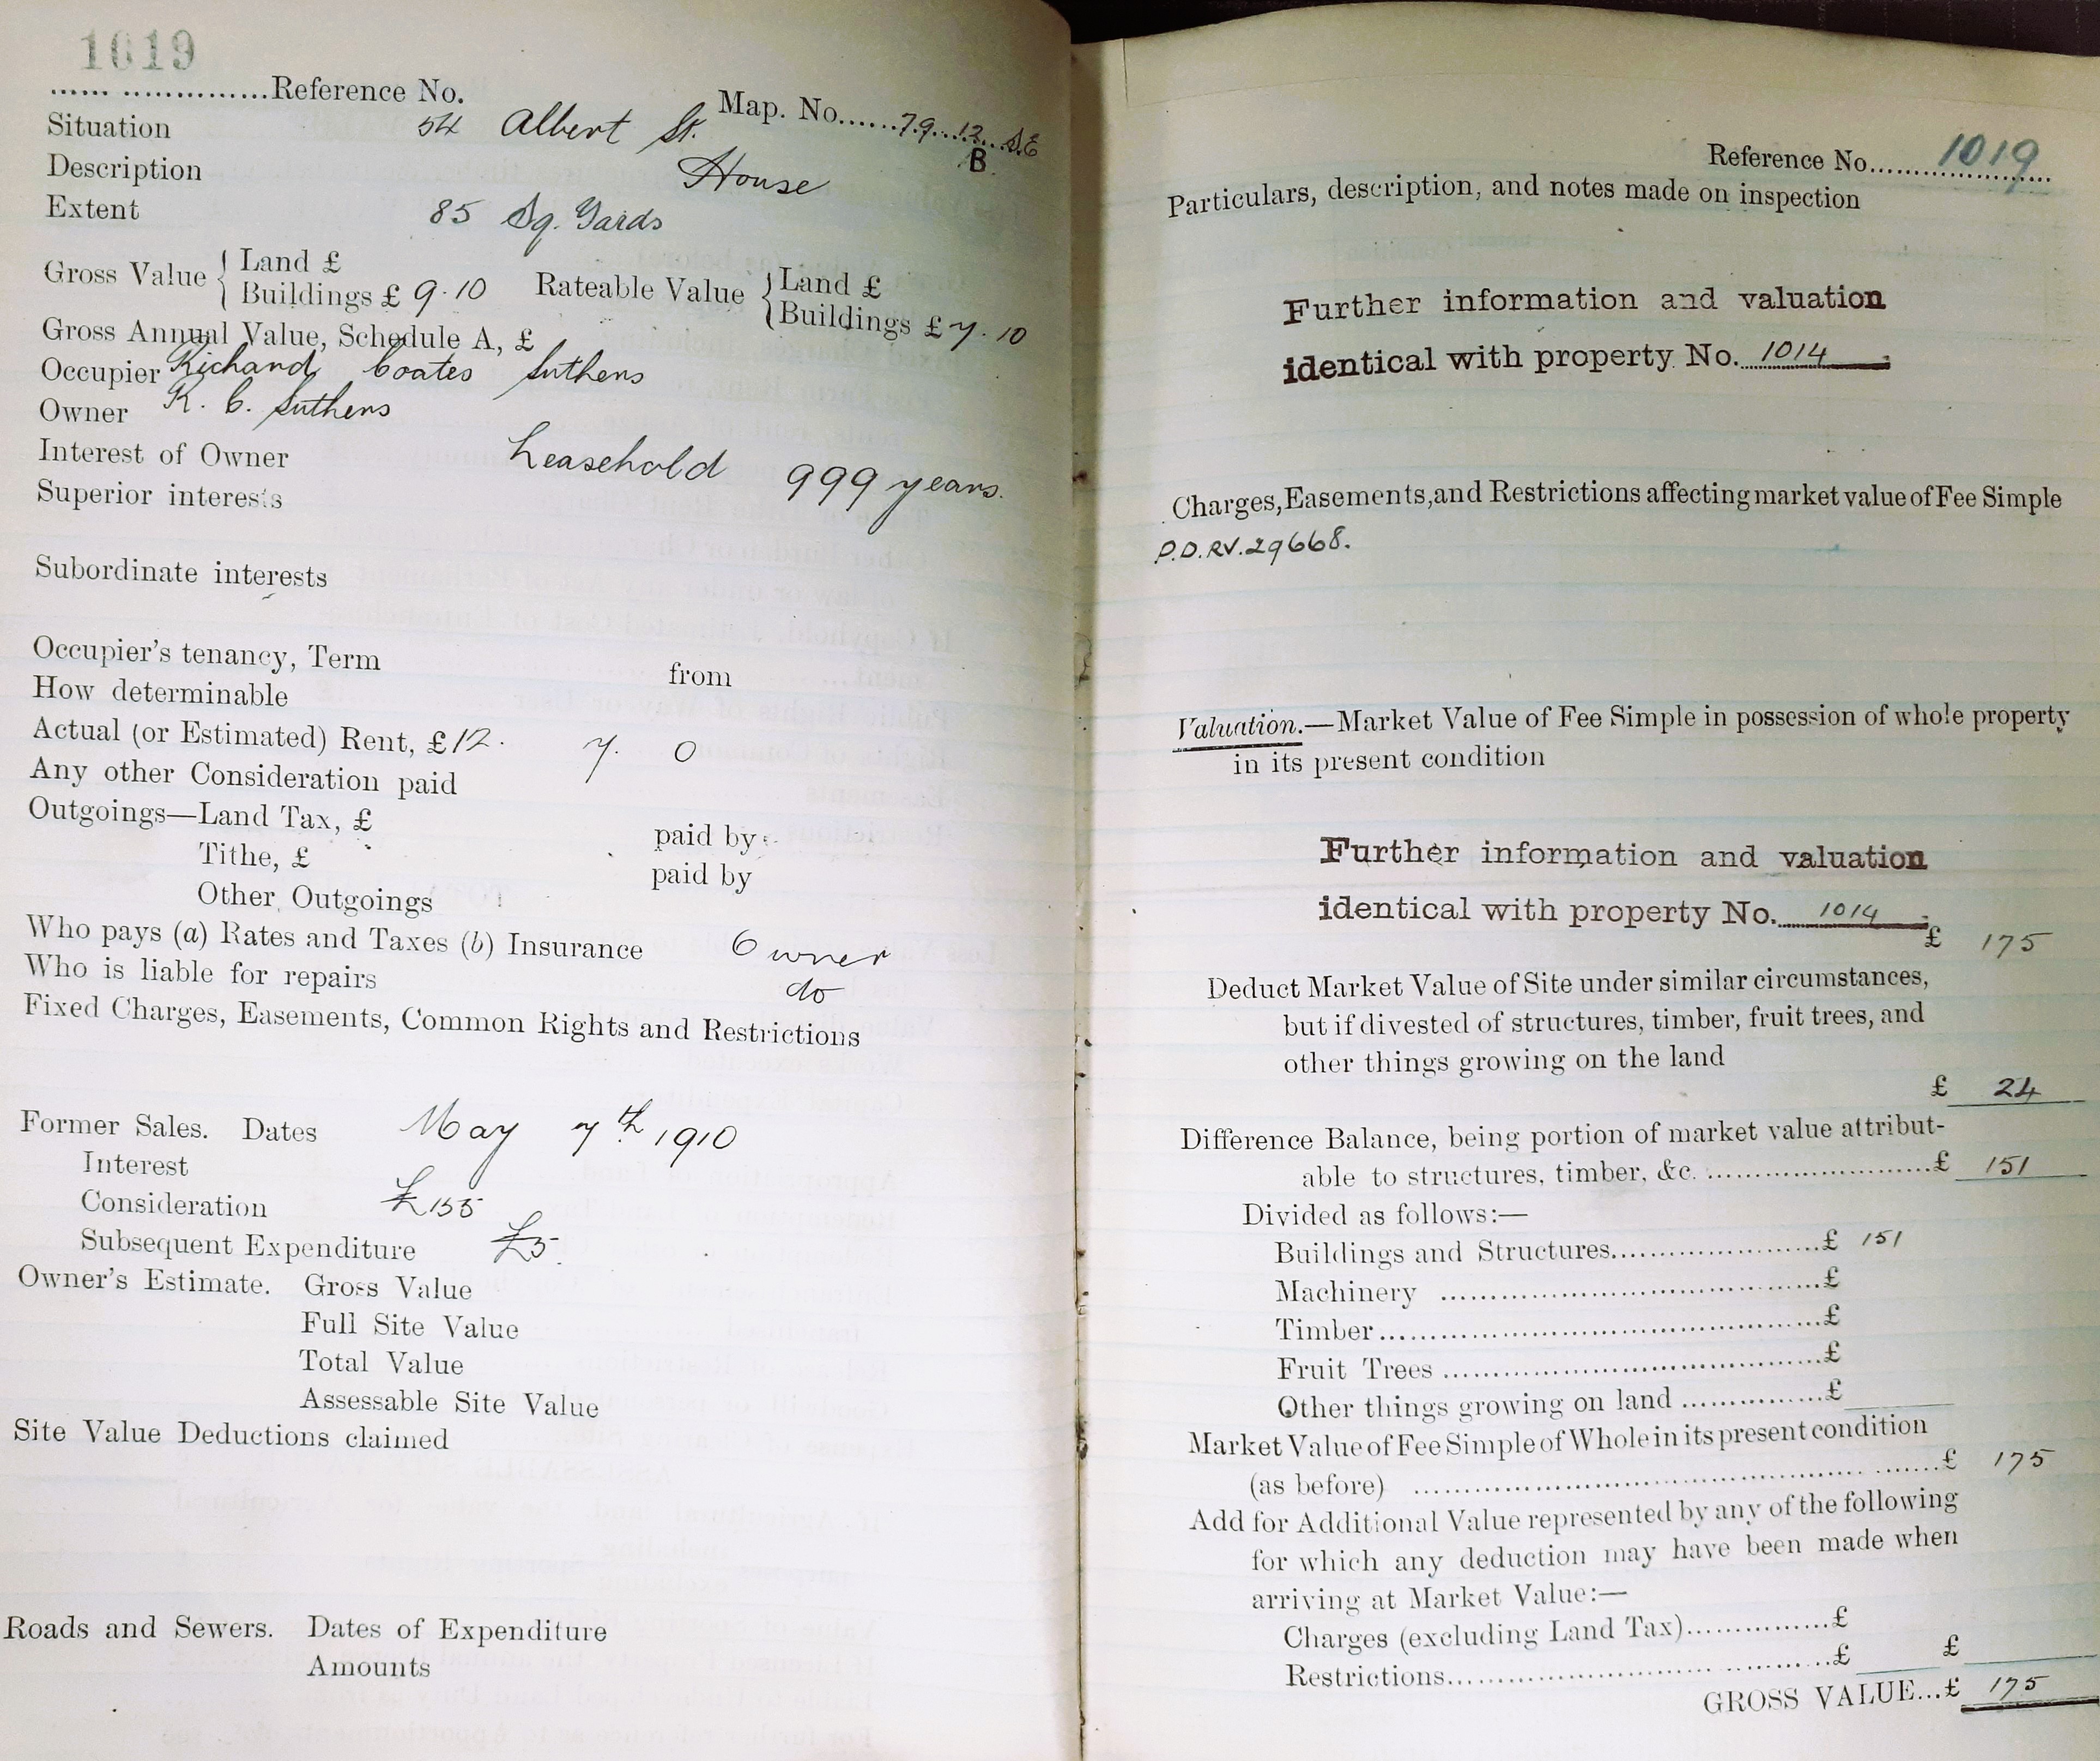 1019
...................Reference No.
Map. No......79...12...S.E
B
Situation 54 Albert St.
Description House
Extent 85 Sq. Yards
Gross Value { Land £
Buildings £ 9.10
Rateable Value { Land £
Buildings £ 7.10
Gross Annual Value, Schedule A, £
Occupier Richard Coates Suthens
Owner R. C. Suthens
Interest of Owner Leasehold 999 years.
Superior interests
Subordinate interests
Occupier's tenancy, Term from
How determinable
Actual (or Estimated) Rent, £12. 7. 0
Any other Consideration paid
Outgoings—Land Tax, £ paid by
Tithe, £ paid by
Other Outgoings
Who pays (a) Rates and Taxes (b) Insurance Owner
Who is liable for repairs do
Fixed Charges, Easements, Common Rights and Restrictions
Former Sales. Dates May 7th 1910
Interest
Consideration £155
Subsequent Expenditure £5.
Owner's Estimate. Gross Value
Full Site Value
Total Value
Assessable Site Value
Site Value Deductions claimed
Roads and Sewers. Dates of Expenditure
Amounts
Reference No. 1019
Particulars, description, and notes made on inspection
Further information and valuation
identical with property No. 1014
Charges, Easements, and Restrictions affecting market value of Fee Simple
P.D.RV.29668.
Valuation.—Market Value of Fee Simple in possession of whole property
in its present condition
Further information and valuation
identical with property No. 1014
£ 175
Deduct Market Value of Site under similar circumstances,
but if divested of structures, timber, fruit trees, and
other things growing on the land
£ 24
Difference Balance, being portion of market value attribut-
able to structures, timber, &c. ........................£ 151
Divided as follows:—
Buildings and Structures......................£ 151
Machinery ........................................£
Timber..............................................£
Fruit Trees ........................................£
Other things growing on land ...............£
Market Value of Fee Simple of Whole in its present condition
(as before) ..................................................£ 175
Add for Additional Value represented by any of the following
for which any deduction may have been made when
arriving at Market Value:—
Charges (excluding Land Tax)...............£
Restrictions........................................£ £
GROSS VALUE...£ 175